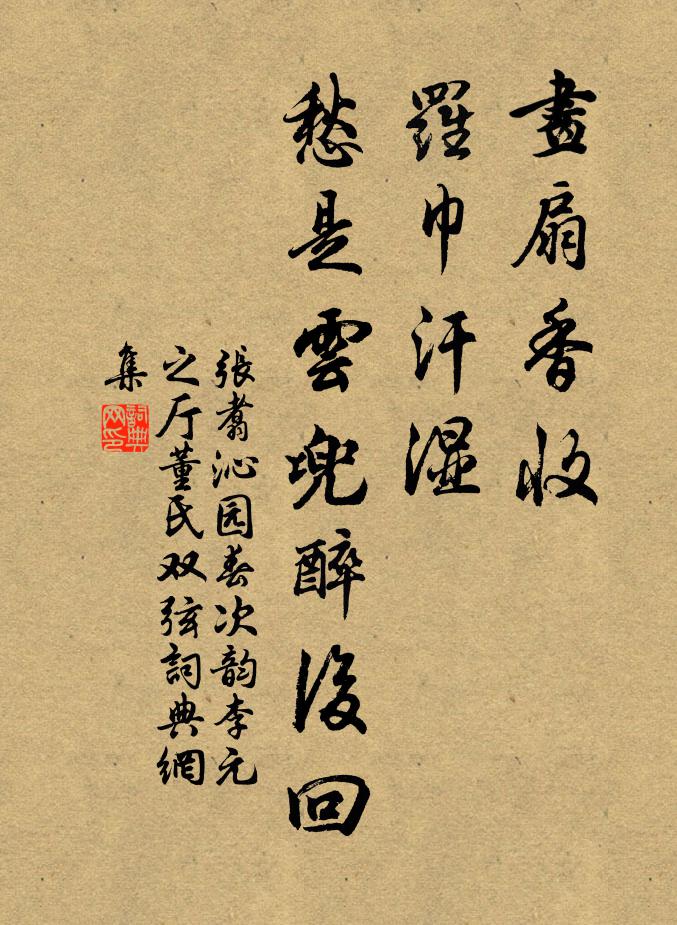 畫扇香收
羅巾汗湿
愁是雲兜醉後回
張翥沁园春次韵李元
之厅董氏双弦詞典網
集
詞典
网印